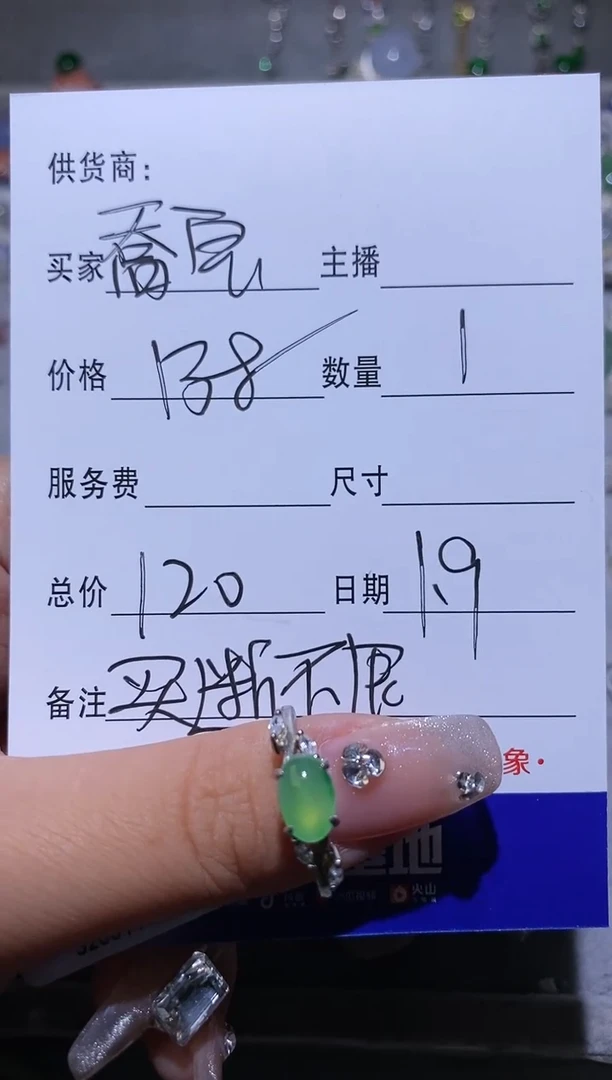 供货商：
买家 乔良 主播
价格 138 数量 1
服务费 尺寸
总价 120 日期 1.9
备注 买断不退
象·
基地
火山